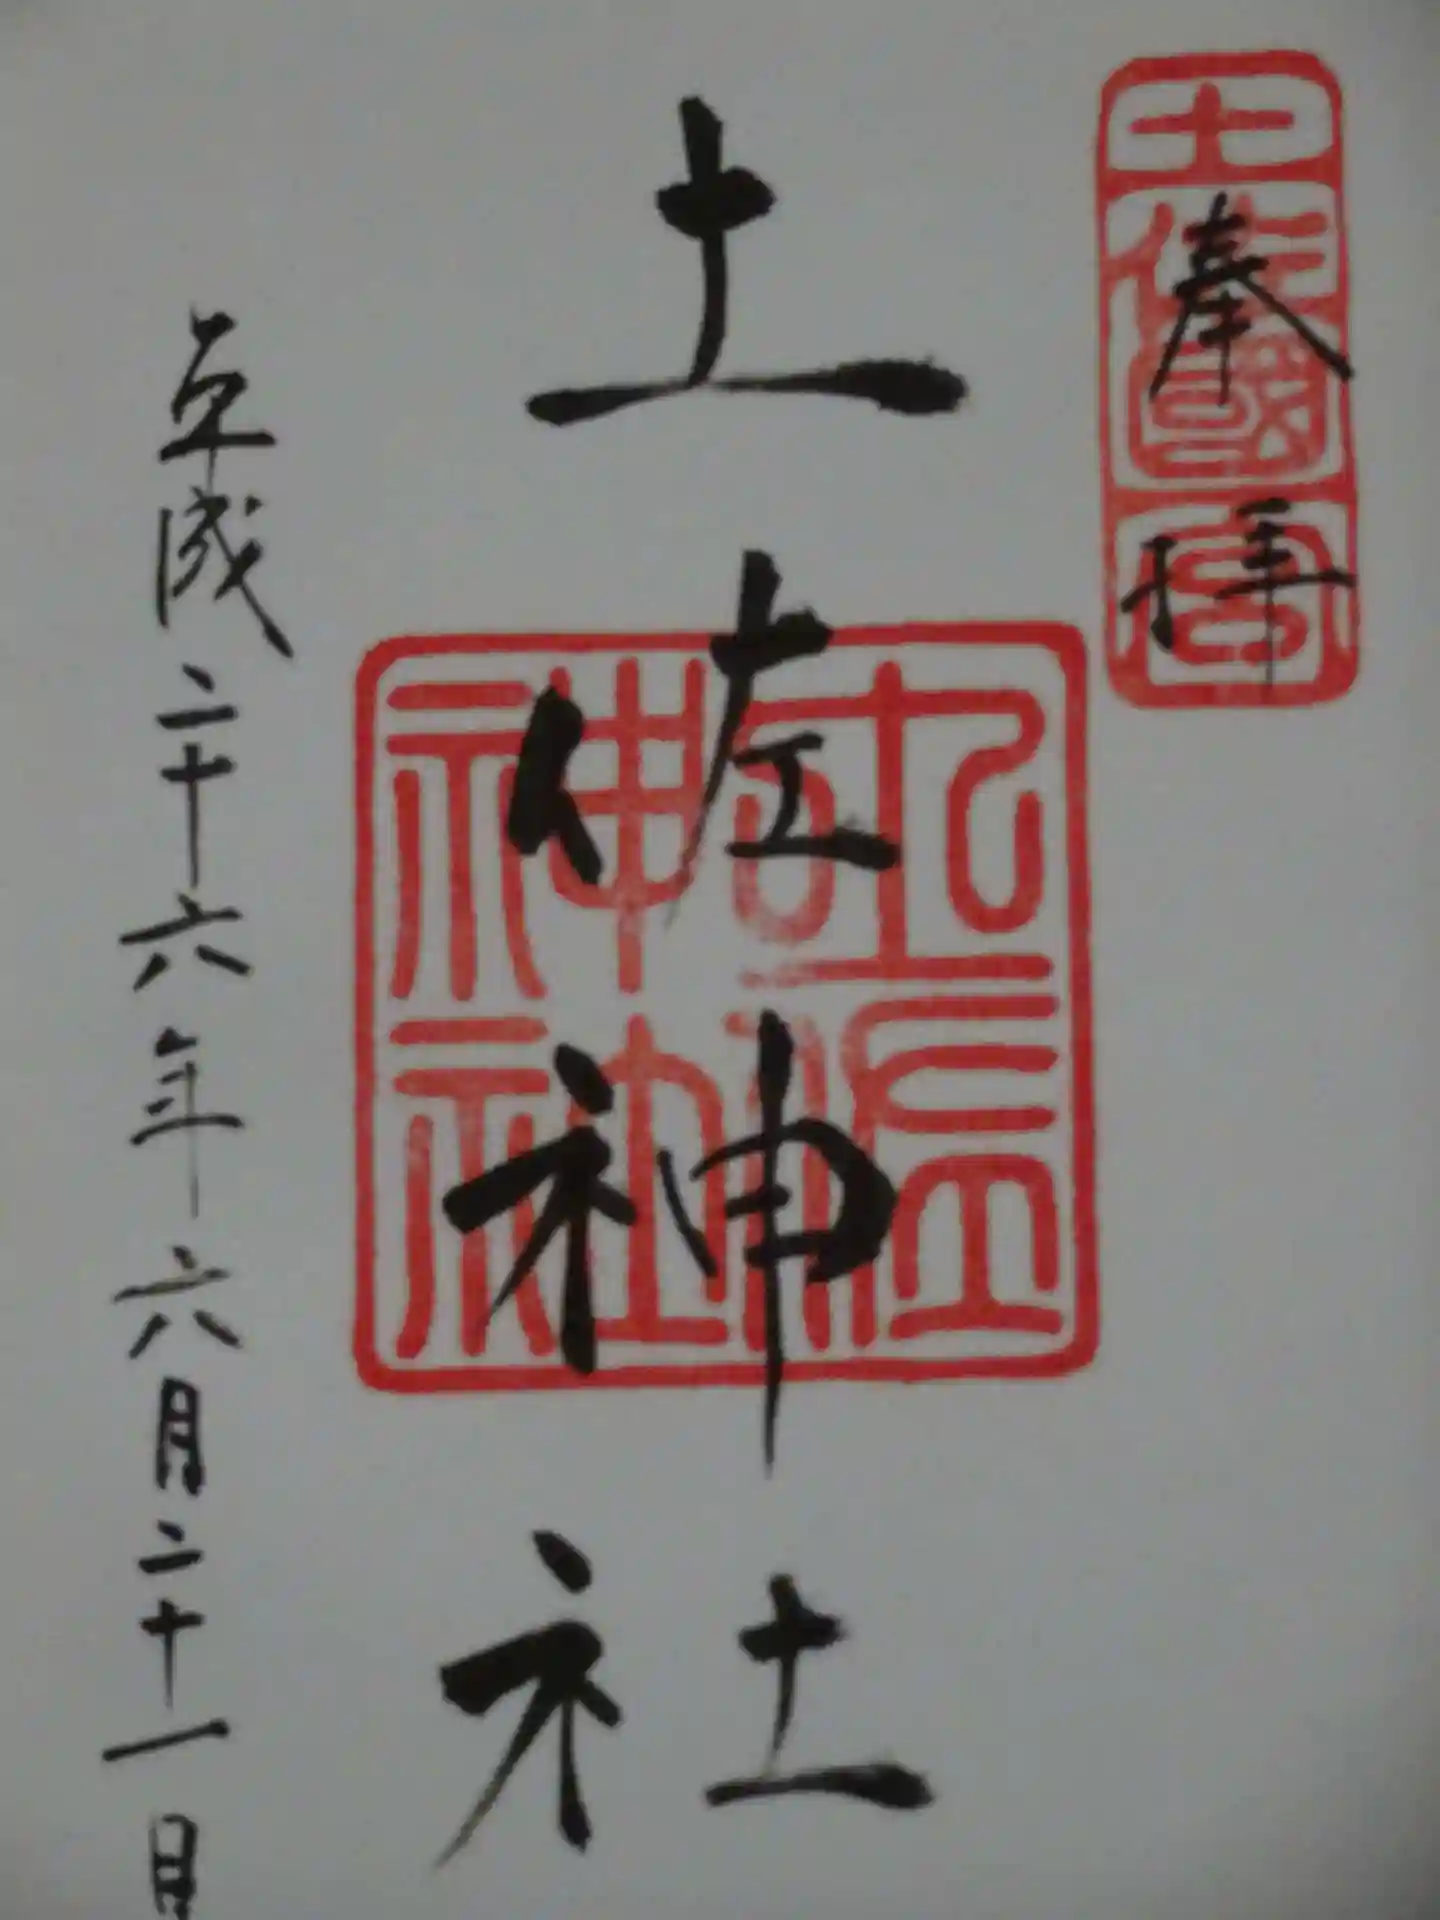 奉拝
土佐國一宮
土佐神社
土佐神社
平成二十六年六月二十一日